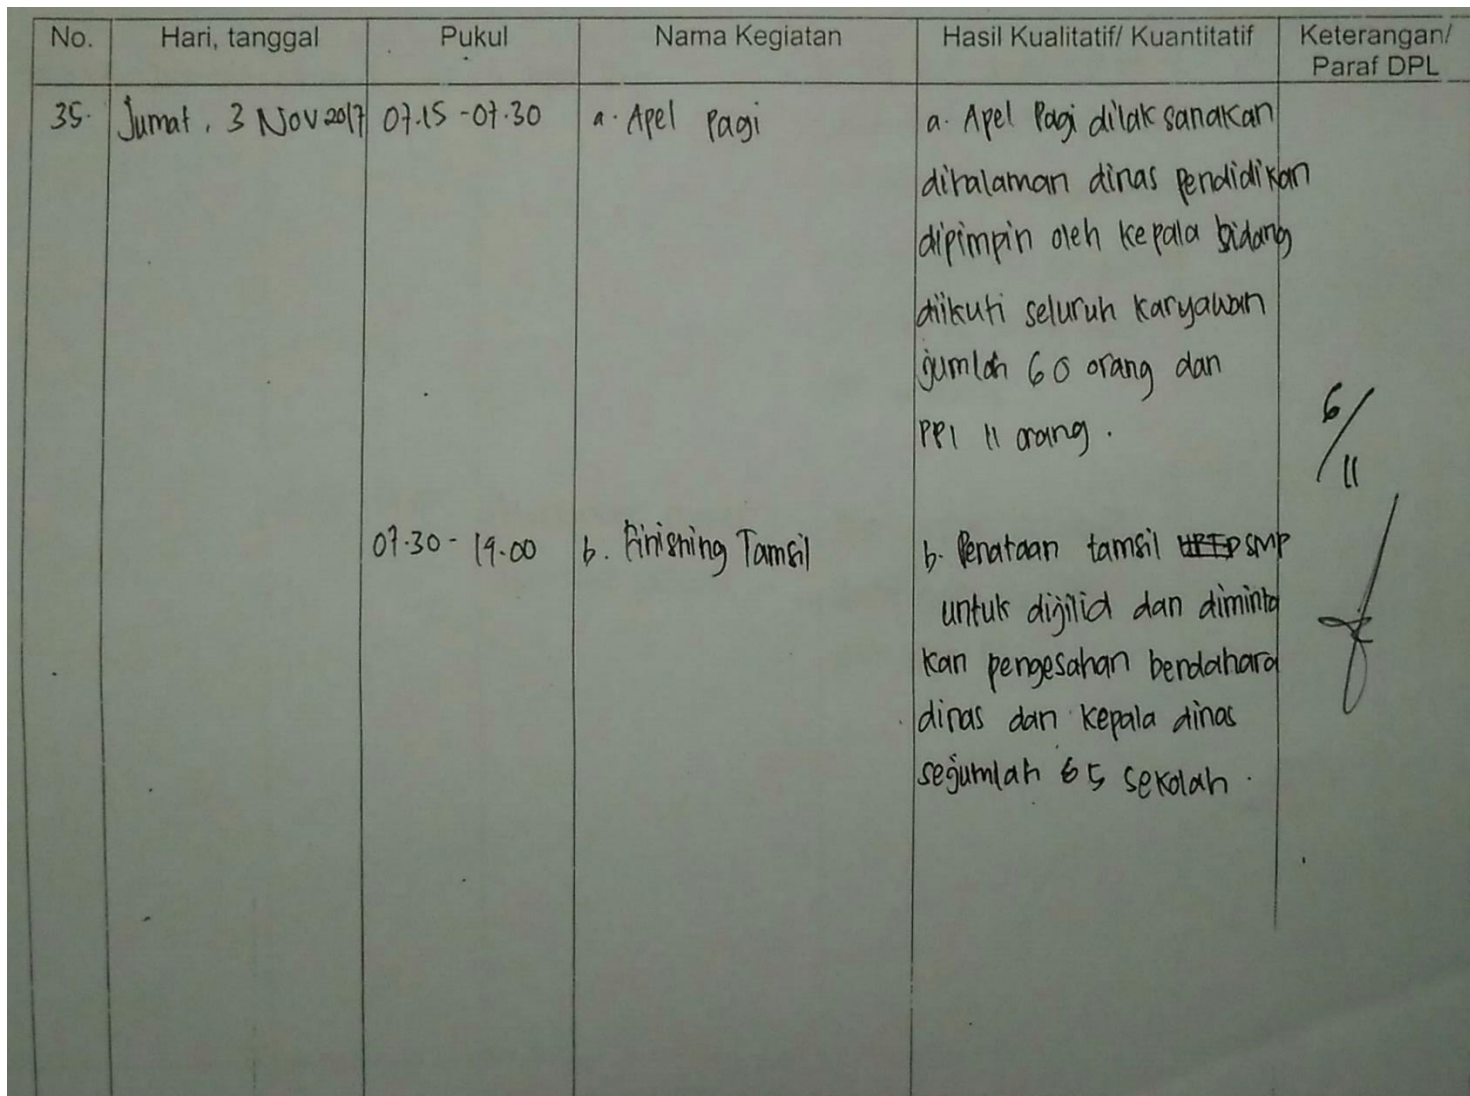 No. Hari, tanggal Pukul Nama Kegiatan Hasil Kualitatif/ Kuantitatif Keterangan/
Paraf DPL
35. Jumat, 3 Nov 2017 07.15 - 07.30 a. Apel Pagi a. Apel Pagi dilaksanakan
dihalaman dinas pendidikan
dipimpin oleh kepala bidang
diikuti seluruh karyawan
jumlah 60 orang dan
PPl 11 orang.
6/11
07.30 - 19.00 b. Finishing Tamsil b. Penataan tamsil SMP
untuk dijilid dan diminta
kan pengesahan bendahara
dinas dan kepala dinas
sejumlah 65 sekolah.